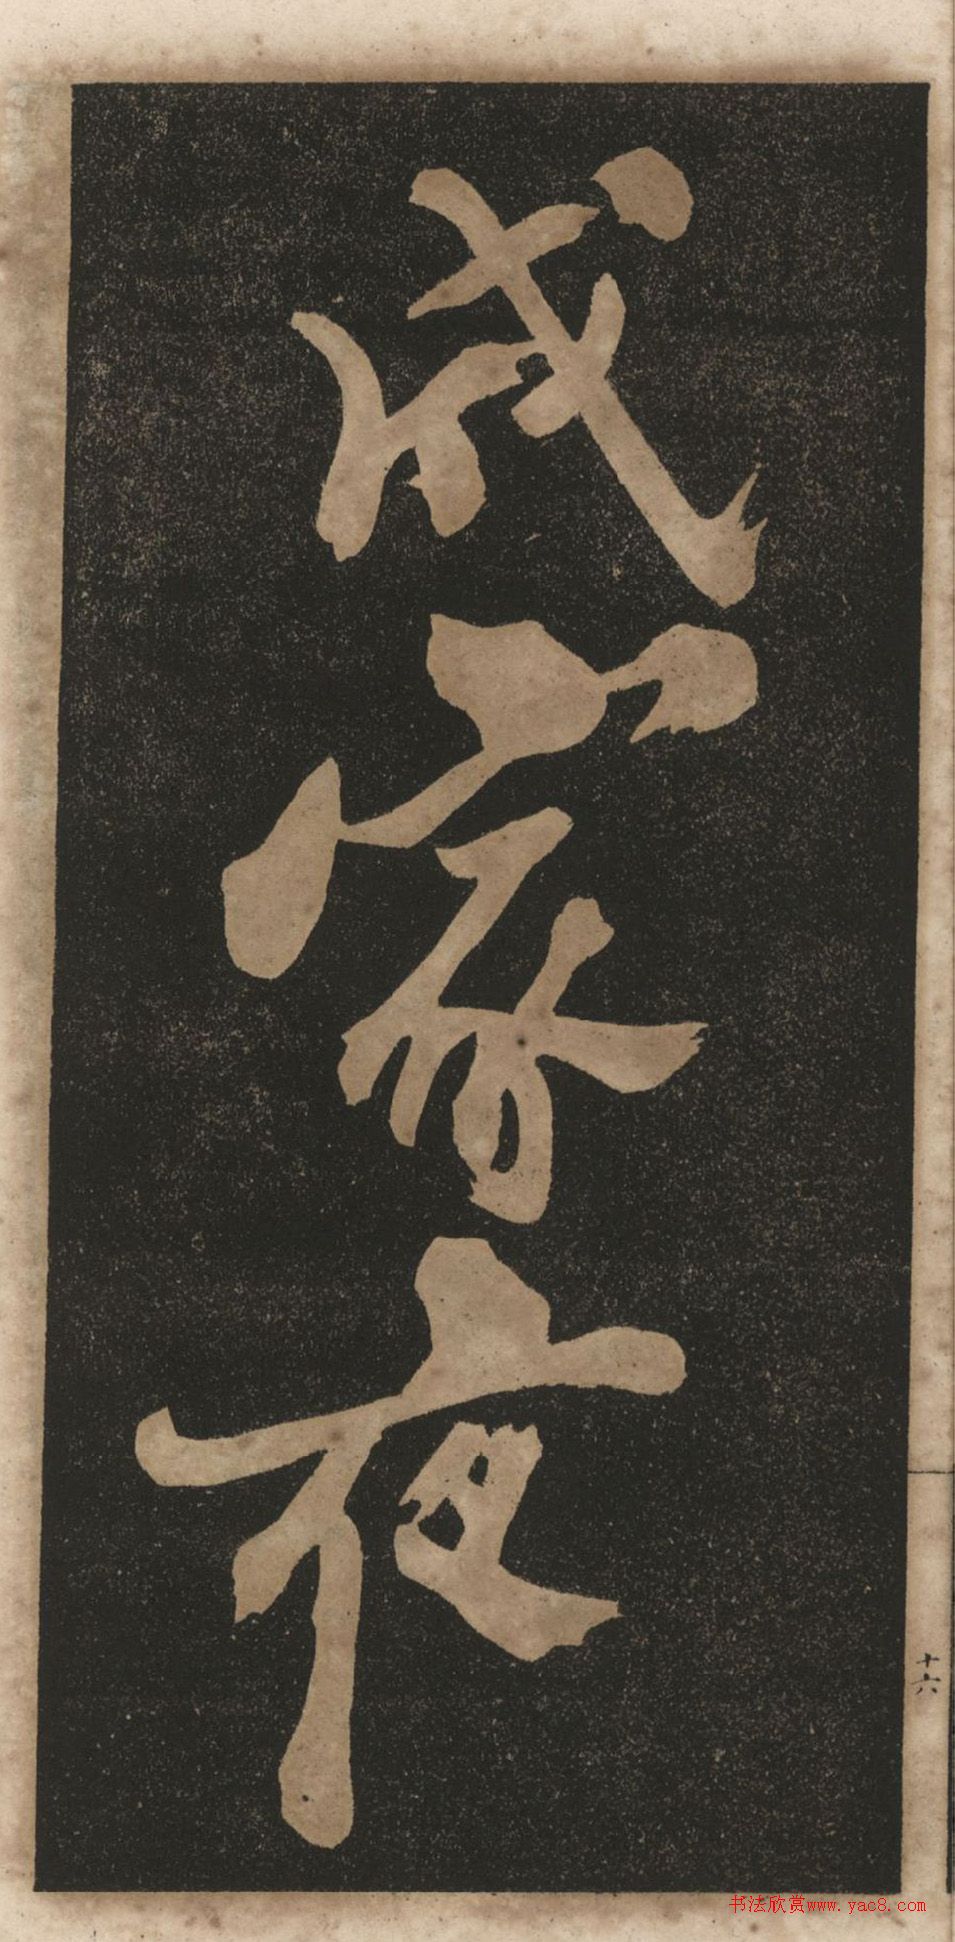 成家夜
十六
书法欣赏www.yac8.com